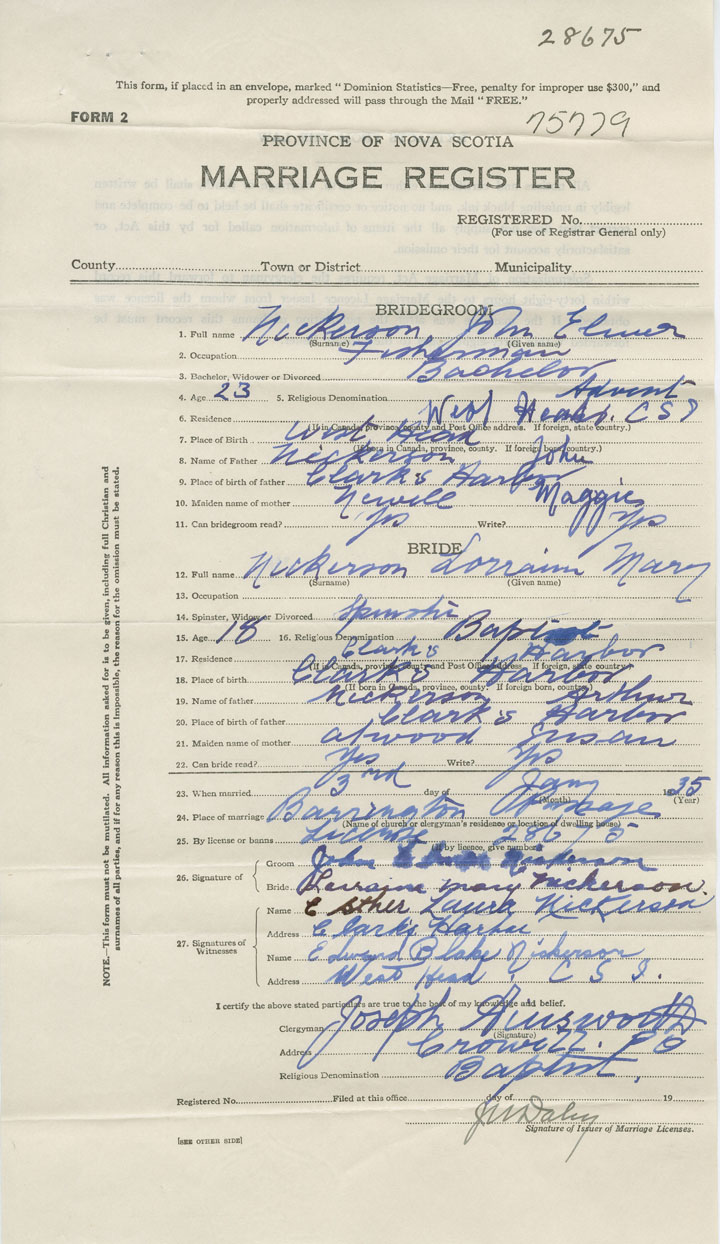 28675
This form, if placed in an envelope, marked "Dominion Statistics—Free, penalty for improper use $300," and
properly addressed will pass through the Mail "FREE."
FORM 2
75779
PROVINCE OF NOVA SCOTIA
MARRIAGE REGISTER
REGISTERED No.
(For use of Registrar General only)
County Town or District Municipality
BRIDEGROOM
1. Full name Nickerson John Elmer
(Surname) (Given name)
2. Occupation Fisherman
3. Bachelor, Widower or Divorced Bachelor
4. Age 23 5. Religious Denomination Advent
6. Residence West Head. C S I
(If in Canada, province, county and Post Office address. If foreign, state country.)
7. Place of Birth West Head
(If born in Canada, province, county. If foreign born, country.)
8. Name of Father Nickerson John
9. Place of birth of father Clark's Harbor
10. Maiden name of mother Newell Maggie
11. Can bridegroom read? Yes Write? Yes
BRIDE
12. Full name Nickerson Lorraine Mary
(Surname) (Given name)
13. Occupation
14. Spinster, Widow or Divorced Spinster
15. Age 18 16. Religious Denomination Baptist
17. Residence Clark's Harbor
(If in Canada, province, county and Post Office address. If foreign, state country.)
18. Place of birth Clark's Harbor
(If born in Canada, province, county. If foreign born, country.)
19. Name of father Nickerson Arthur
20. Place of birth of father Clark's Harbor
21. Maiden name of mother atwood Susan
22. Can bride read? Yes Write? Yes
23. When married 3rd day of Jany 1935
(Month) (Year)
24. Place of marriage Barrington Passage
(Name of church or clergyman's residence or location of dwelling house)
25. By license or banns License 28675
(If by licence, give number)
26. Signature of Groom John Elmer Nickerson
Bride Lorraine Mary Nickerson.
27. Signatures of Witnesses Name Esther Laura Nickerson
Address Clark's Harbor
Name Edward Blake Nickerson
Address West Head, C S I.
I certify the above stated particulars are true to the best of my knowledge and belief.
Clergyman Joseph Ainsworth
(Signature)
Address Crowell. P O
Religious Denomination Baptist,
Registered No. Filed at this office day of 19
Signature of Issuer of Marriage Licenses.
[SEE OTHER SIDE]
NOTE.—This form must not be mutilated. All information asked for is to be given, including full Christian and
surnames of all parties, and if for any reason this is impossible, the reason for the omission must be stated.